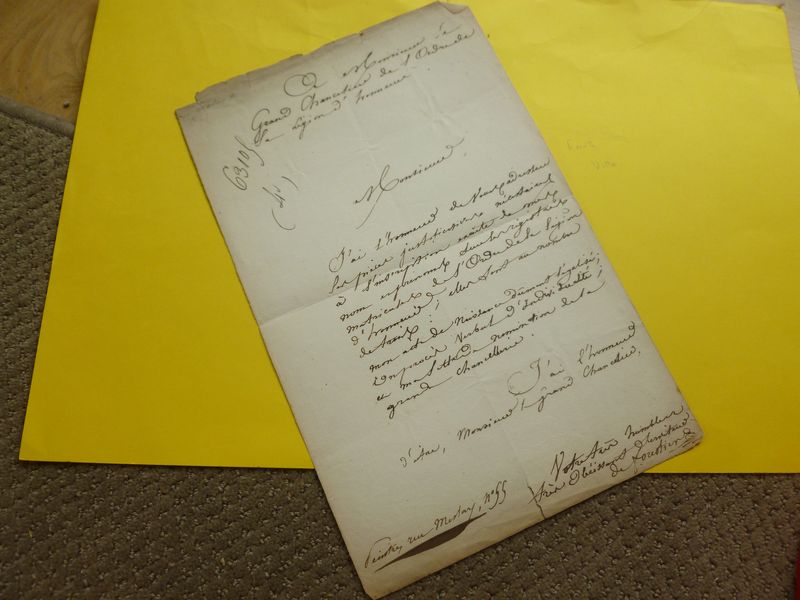 A Monsieur le
Grand Chancelier de l'Ordre de
la Légion d'honneur
6310
Monsieur
J'ai l'honneur de Vous adresser
les pièces justificatives nécessaires
à l'inscription exacte de mes
nom et prénoms sur les registres
matricules de l'Ordre de la Légion
d'honneur, elles sont au nombre
de trois :
mon acte de Naissance dument légalisé;
un procès Verbal d'Individualité;
et ma lettre de nomination de la
grande chancellerie.
J'ai l'honneur
d'être, Monsieur le grand Chancelier,
Votre très humble
très obéissant serviteur
rue Meslay, N° 55